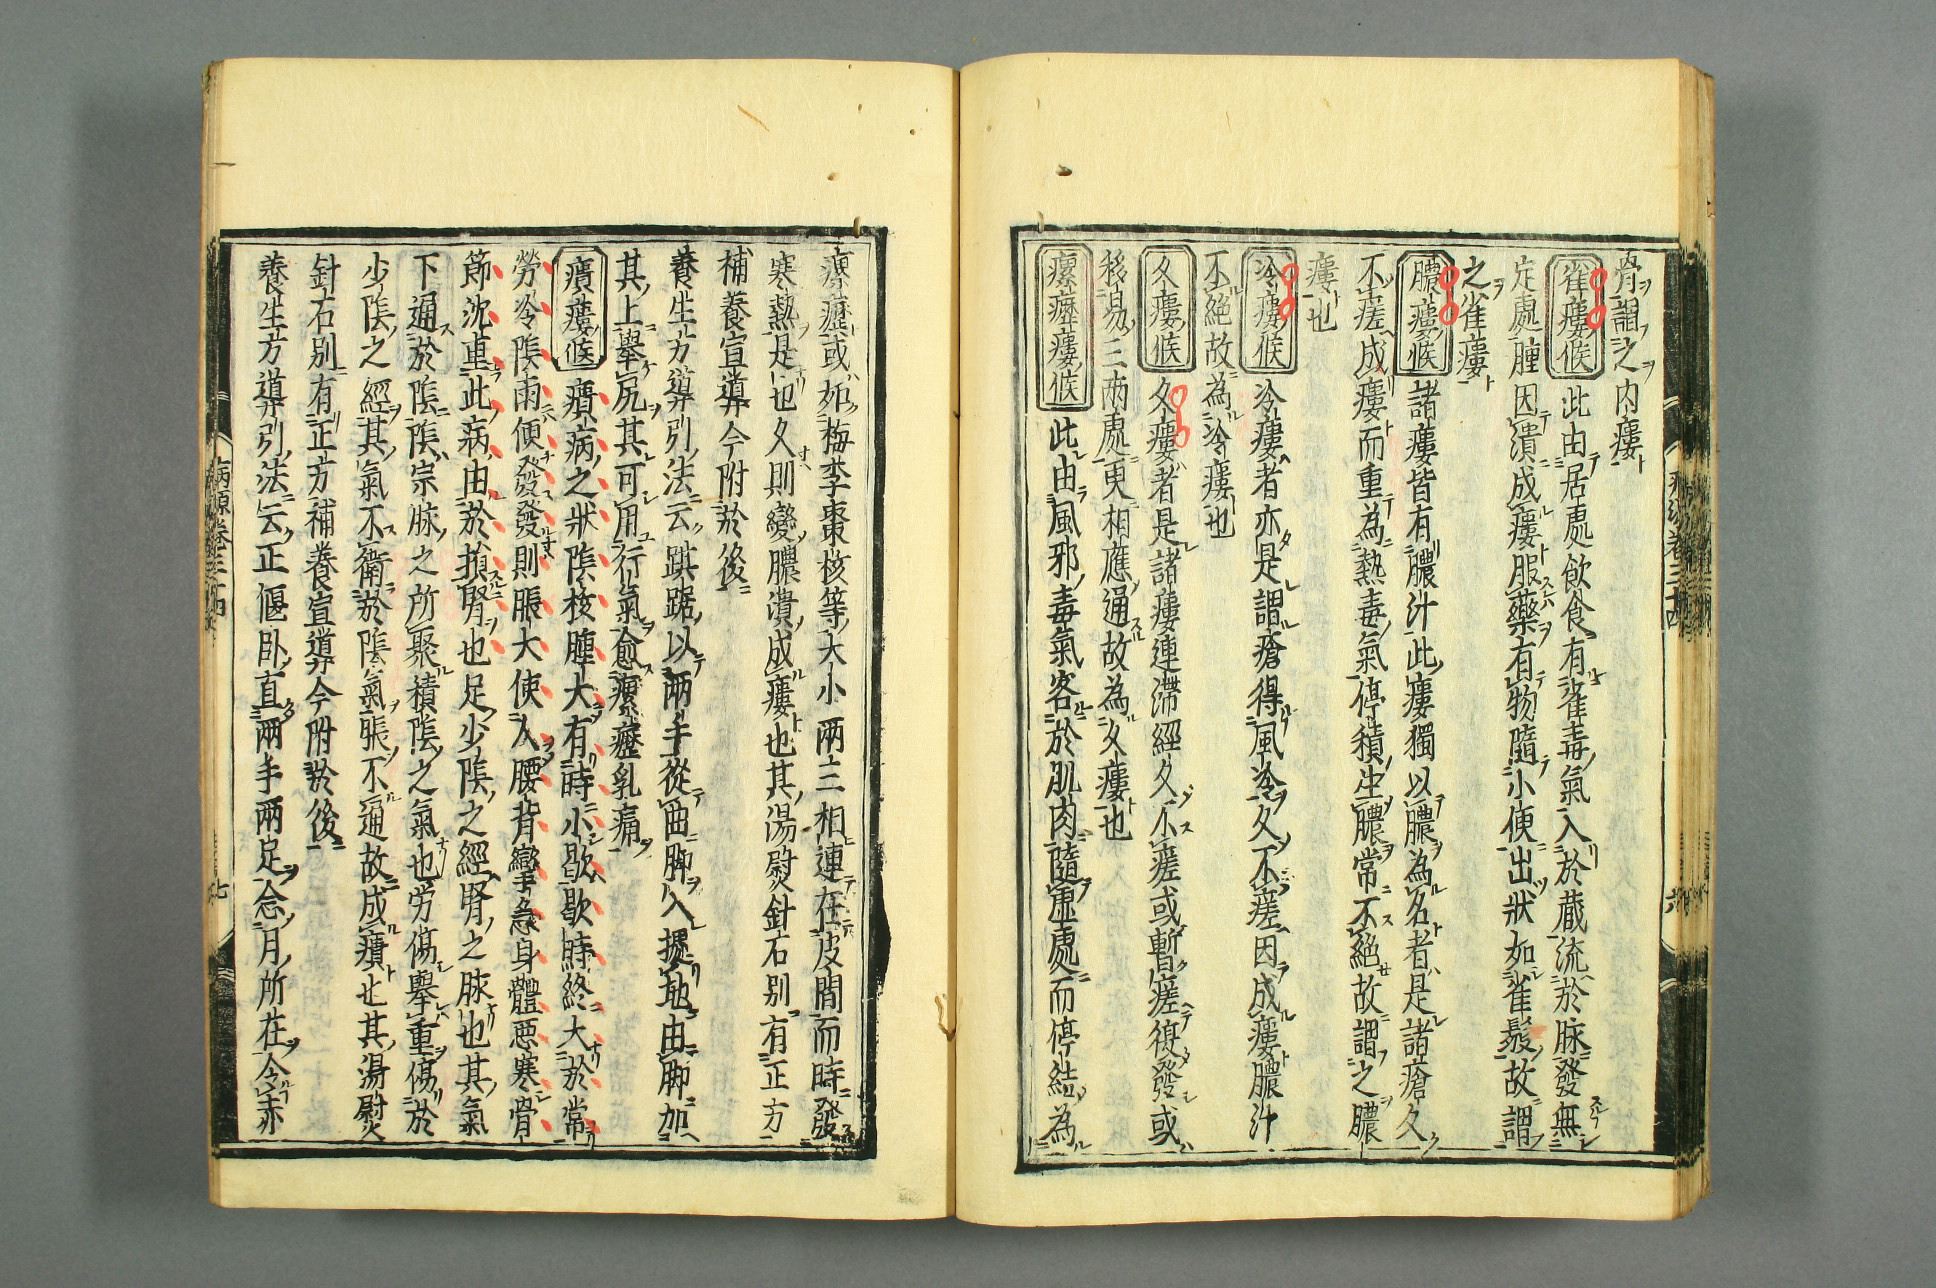 骨謂之内瘻
雀瘻候 此由居處飲食有雀毒氣入於蔵流於脉發無
定處腫因潰成瘻服藥有物隨小便出狀如雀䯻故謂
之雀瘻
膿瘻候 諸瘻皆有膿汁此瘻獨以膿為名者是諸瘡久
不瘥成瘻而重為熱毒氣停積生膿常不絶故謂之膿
瘻也
冷瘻候 冷瘻者亦是謂瘡得風冷久不瘥因成瘻膿汁
不絶故為冷瘻也
久瘻候 久瘻者是諸瘻連滞經久不瘥或暫瘥復發或
移易三兩處更相應通故為久瘻也
瘰癧瘻候 此由風邪毒氣客於肌肉隨虚處而停結為
瘰癧或如梅李棗核等大小兩三相連在皮間而時發
寒熱是也久則變膿潰成瘻也其湯熨針石别有正方
補養宣導今附於後
養生方導引法云踑踞以兩手從曲脚入據地曲脚加
其上擧尻其可用行氣愈瘰癧乳痛
㿉瘻候 㿉病之狀陰核腫大有時小歇歇時終大於常
勞冷陰雨便發發則脹大使人腰背攣急身體惡寒骨
節沈重此病由於損腎也足少陰之經腎之脉也其氣
下通於陰陰宗脉之所聚積陰之氣也労傷擧重傷於
少陰之經其氣不衛於陰氣脹不通故成㿉也其湯熨
針石别有正方補養宣導今附於後
養生方導引法云正偃卧直兩手兩足念月所在令赤
病源卷三十四
七
六